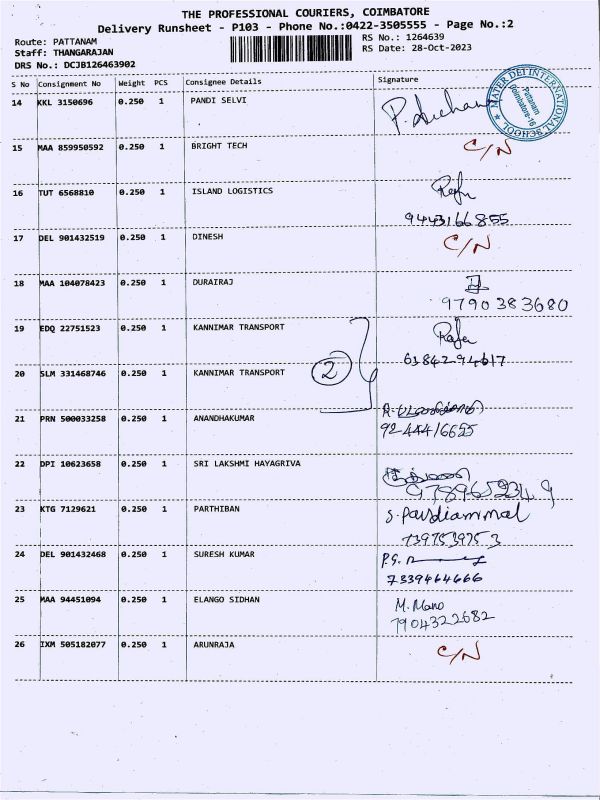 THE PROFESSIONAL COURIERS, COIMBATORE
Delivery Runsheet - P103 - Phone No.:0422-3505555 - Page No.:2
Route: PATTANAM
Staff: THANGARAJAN
DRS No.: DCJB126463902
RS No.: 1264639
RS Date: 28-Oct-2023
S No Consignment No Weight PCS Consignee Details Signature
MATER DEI INTERNATIONAL SCHOOL
Pattanam
Coimbatore-16
14 KKL 3150696 0.250 1 PANDI SELVI
15 MAA 859950592 0.250 1 BRIGHT TECH C/N
16 TUT 6568810 0.250 1 ISLAND LOGISTICS
9443166855
17 DEL 901432519 0.250 1 DINESH C/N
18 MAA 104078423 0.250 1 DURAIRAJ
9790383680
19 EDQ 22751523 0.250 1 KANNIMAR TRANSPORT
6384294617
20 SLM 331468746 0.250 1 KANNIMAR TRANSPORT 2
21 PRN 500033258 0.250 1 ANANDHAKUMAR
9244416655
22 DPI 10623658 0.250 1 SRI LAKSHMI HAYAGRIVA
9789652349
23 KTG 7129621 0.250 1 PARTHIBAN S. Pandiammal
7397539753
24 DEL 901432468 0.250 1 SURESH KUMAR P.G.
7339464666
25 MAA 94451094 0.250 1 ELANGO SIDHAN M. Mano
7904322682
26 IXM 505182077 0.250 1 ARUNRAJA C/N